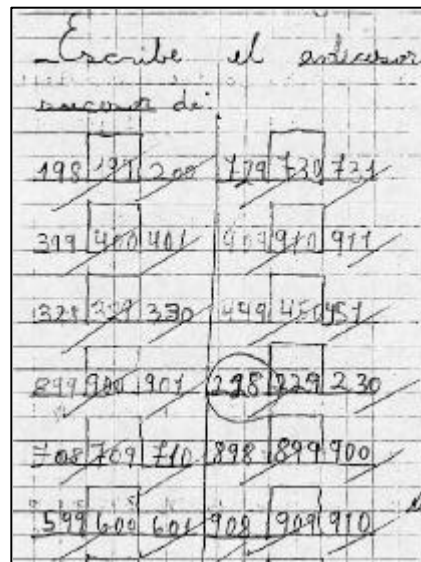 _Escribe el antecesor
sucesor de:
198 199 200 729 730 731
399 400 401 909 910 911
328 329 330 449 450 451
899 900 901 228 229 230
708 709 710 898 899 900
599 600 601 908 909 910